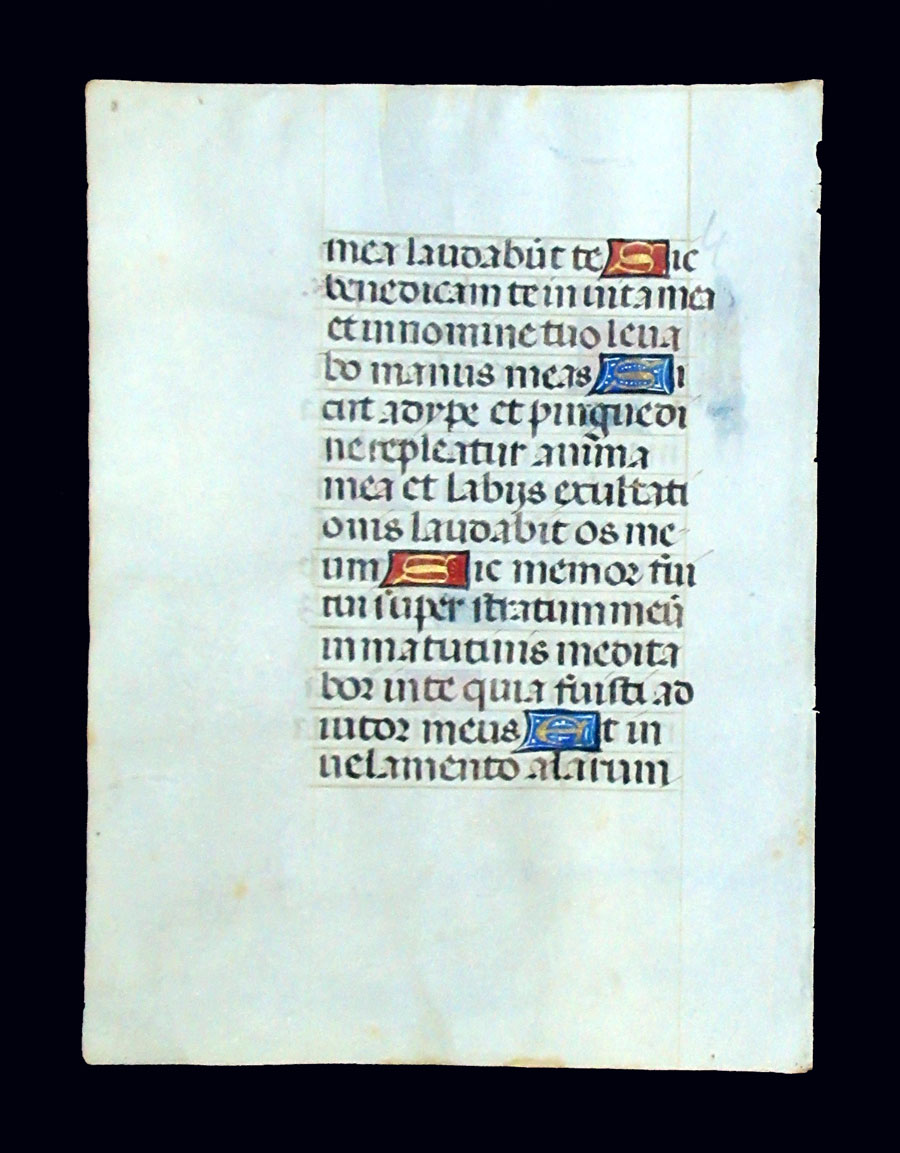 mea laudabūt te Sic
benedicam te in uita mea
et in nomine tuo leua
bo manus meas Si
cut adype et pinguedi
ne repleatur anīma
mea et labijs exultati
onis laudabit os me-
um Sic memor fui
tui super stratum meū
in matutinis medita
bor in te quia fuisti ad
iutor meus Et in
uelamento alarum